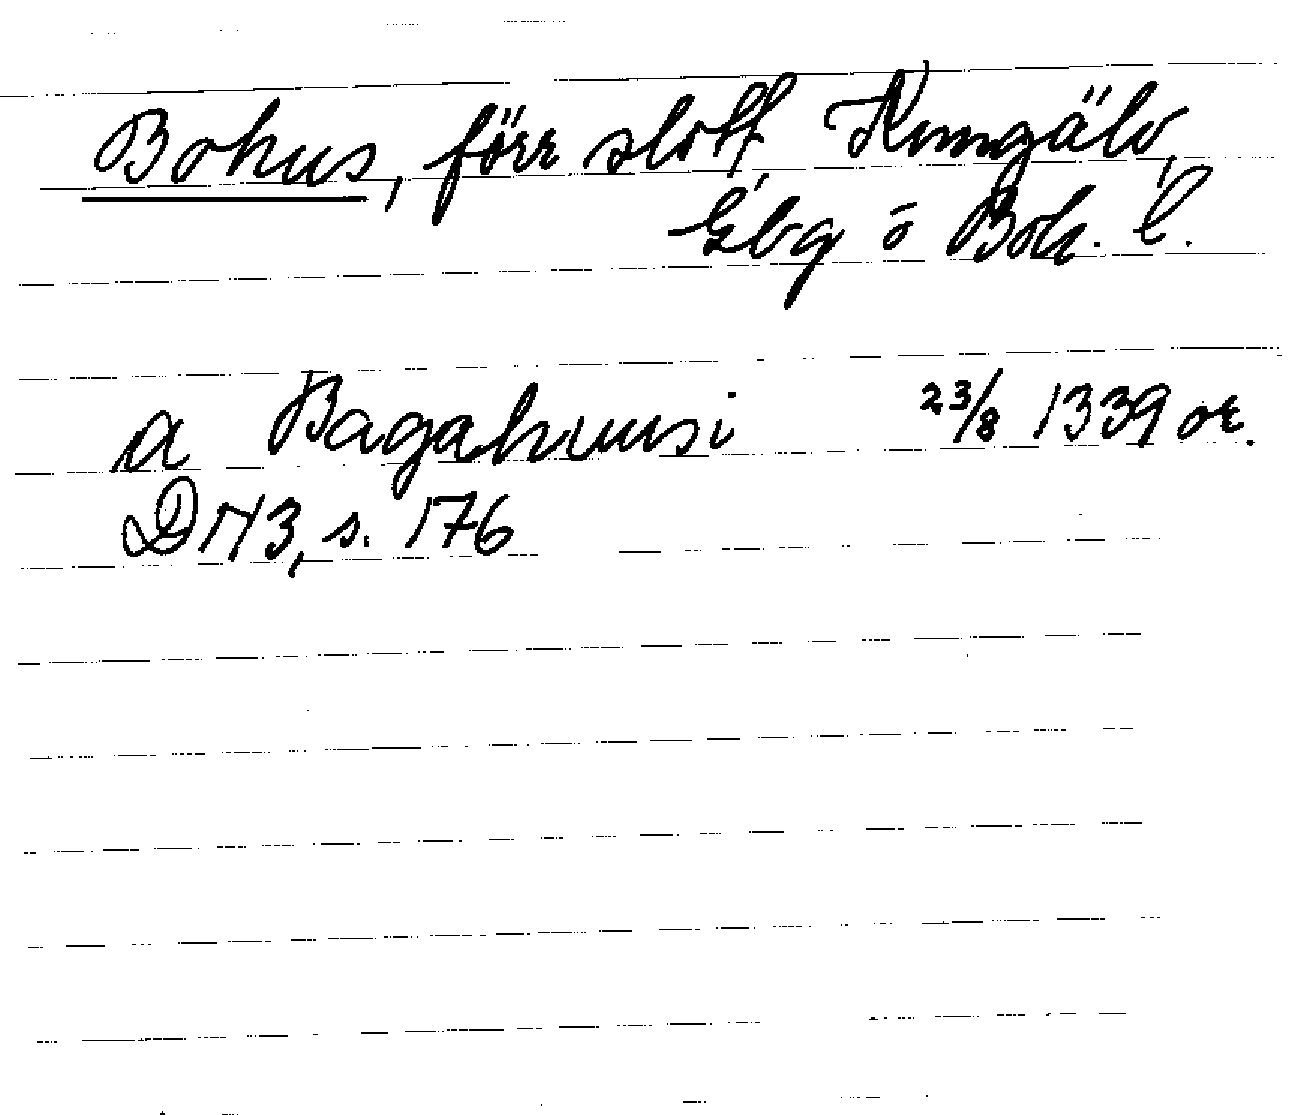 Bohus, förr slott Kungälv,
Gbg o Boh. l.
a Bagahuusi 23/8 1339 or.
DN 3, s. 176